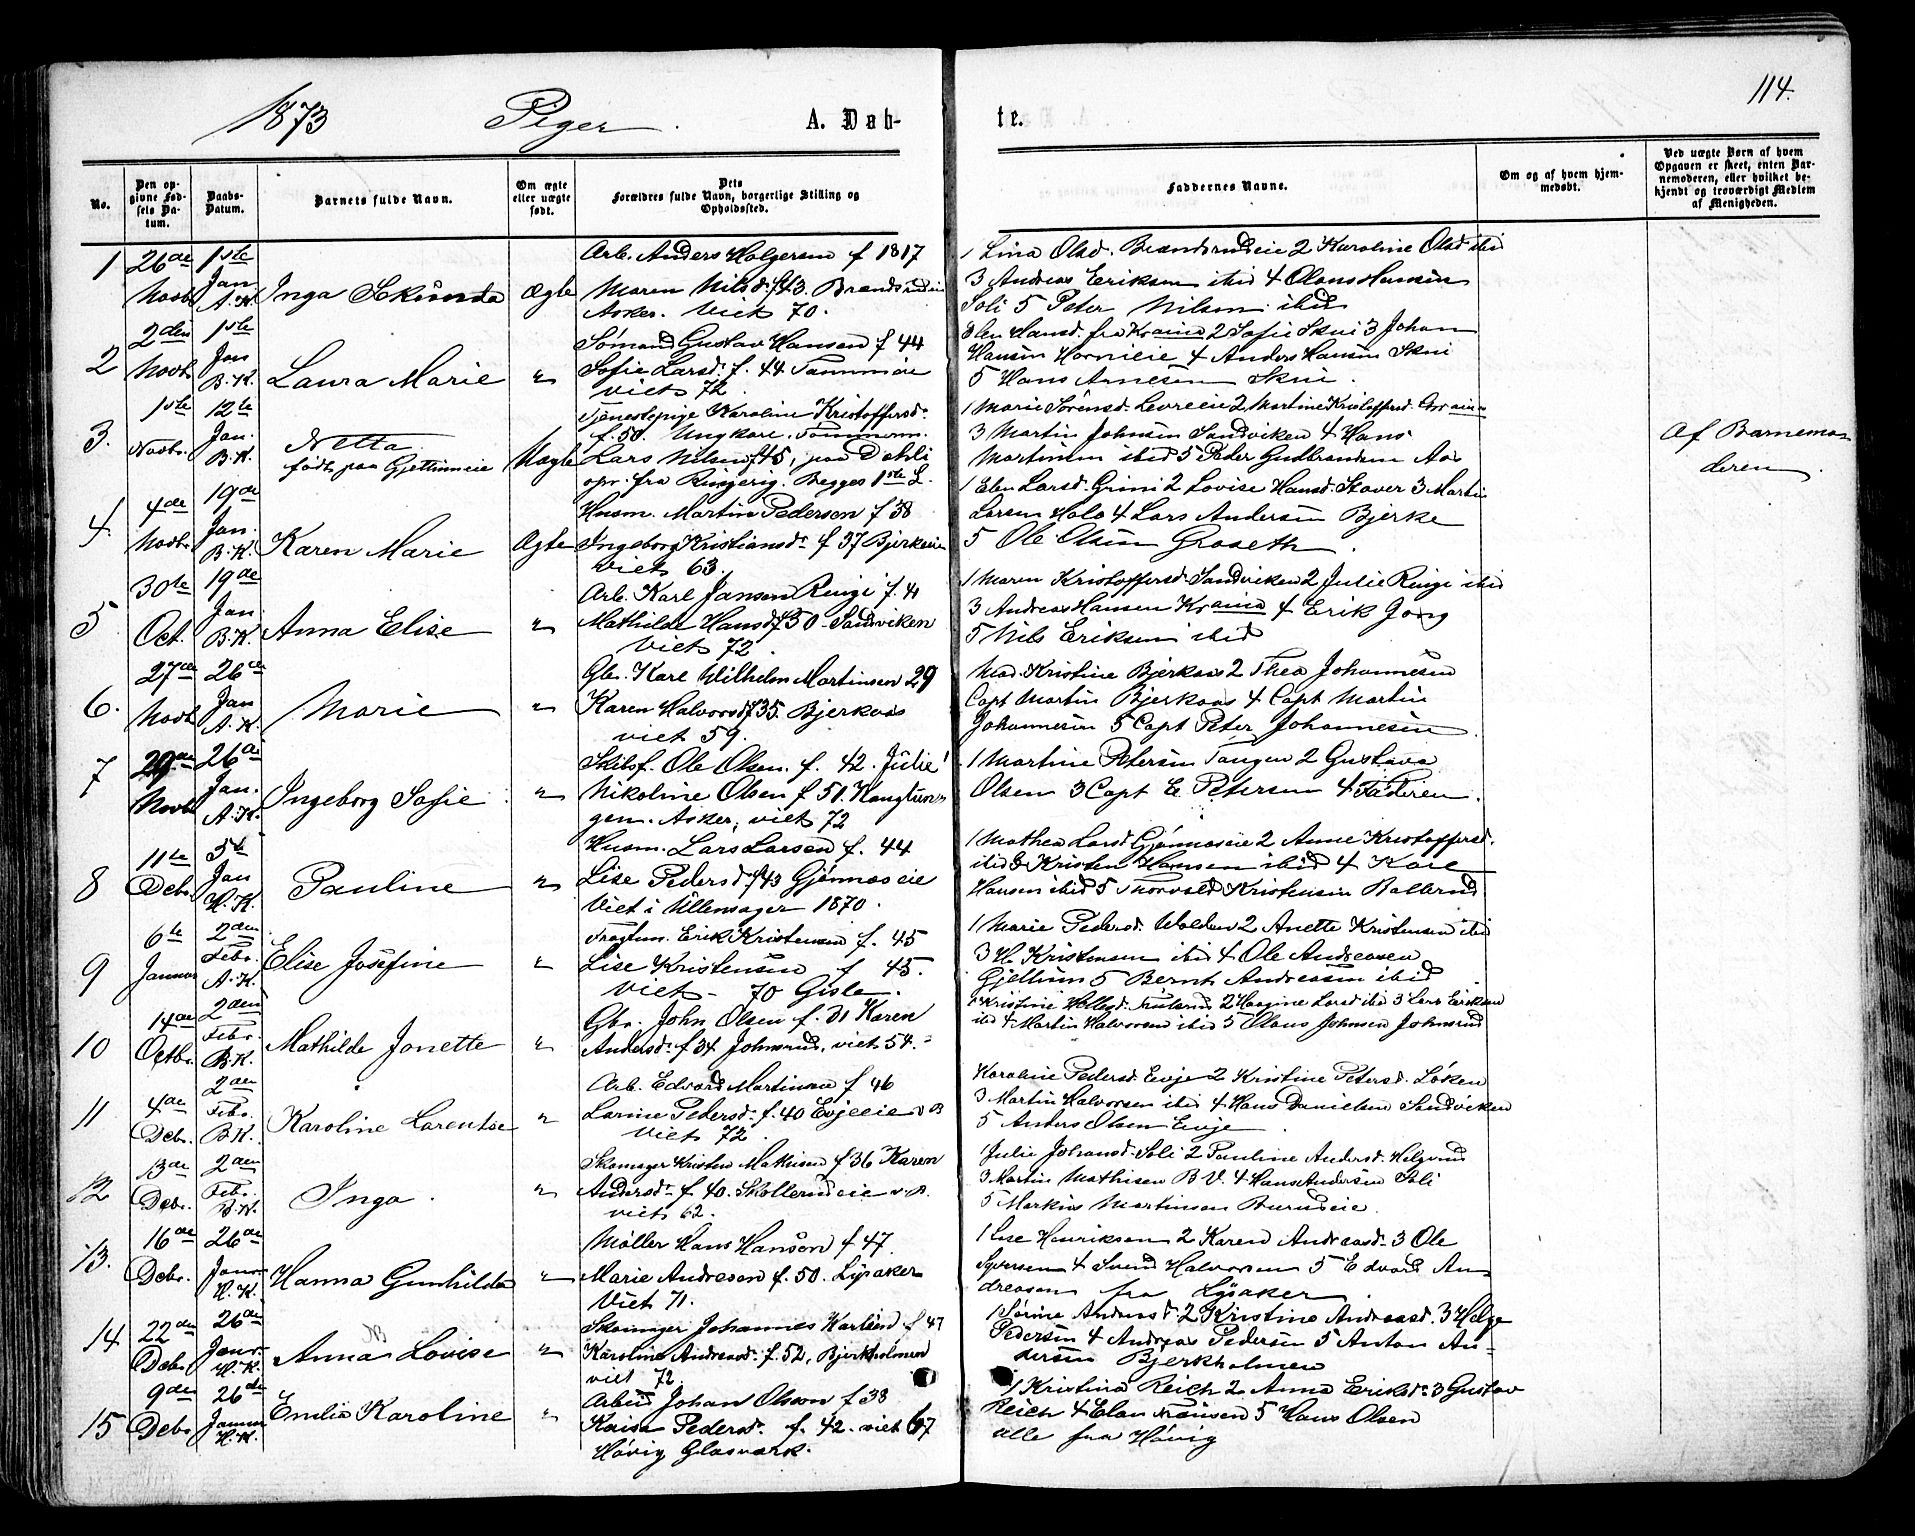 114.
1873 Piger. A. Døb- te.
No.
Den op-
givne Fød-
sels Da-
tum.
Daabs-
Datum.
Barnets fulde Navn.
Om ægte
eller uægte
født.
Dets
Forældres fulde Navn, borgerlige Stilling og
Opholdssted.
Faddernes Navne.
Om og af hvem hjem-
medøbt.
Ved uægte Børn af hvem
Opgaven er skeet, enten Bar-
nemoderen, eller hvilket be-
kjendt og troværdigt Medlem
af Menigheden.
1 26de Novb 1ste Jan A.K. Inga Ægte
Arb. Anders Holgersen f 1817
Maren Nilsd. f 43. Brændsrudeie
Asker. Viet 70.
1 Lina Olsd. Brændsrudeie 2 Karoline Olsd ibid
3 Andreas Eriksen ibid 4 Olaus Hansen
Soli 5 Peter Nilsen ibid
2 2den Novb. 1ste Jan B.K. Laura Marie "
Sømand Gustav Hansen f 44
Sofie Larsd. f. 44
viet 72.
Hansd. fra 2 Sofie Skui 3 Johan
Hansen 4 Anders Hansen Skui
5 Hans Arnesen Skui.
3. 1ste Novbr. 12te Jan. B.K. Netta
født paa Uægte
Tjenestepige Karoline Kristoffersd.
f. 50. Ungkarl.
Lars Nilsen f 45, paa Dahli
opr. fra Ringerig. Begges 1ste L.
1 Marie Sørensd. 2 Martine Kristoffersd.
3 Martin Johnsen Sandviken 4 Hans
Martinsen ibid 5 Peder Gudbrandsen Aas
Af Barnemo-
deren.
4. 4de Novbr. 19de Jan. B.K. Karen Marie Ægte
Husm. Martin Pedersen f 38
Ingeborg Kristiansd. f 37 Bjerkeeie
viet 63.
1 Elen Larsd. Grini 2 Lovise Hansd. Staver 3 Martin
Larsen Holo 4 Lars Andersen Bjerke
5 Ole Olsen Groseth.
5. 30te Oct. 19de Jan. B.K. Anna Elise "
Arb. Karl Jansen Ringi f. 41
Mathilde Hansd. f 50. Sandviken
Viet 72.
1 Maren Kristoffersd. Sandviken 2 Julie Ringi ibid
3 Andreas Hansen 4 Erik Jong
5 Nils Eriksen ibid
6. 27de Novb. 26de Jan A.K. Marie "
Gbr. Karl Wilhelm Martinsen 29
Karen Halvorsd. f 35. Bjerkaas
viet 59.
Mad. Kristine Bjerkaas 2 Thea Johannesen
Capt Martin Bjerkaas 4 Capt Martin
Johannesen 5 Capt Peter Johannesen
7 29de Novb 26de Jan. A.K. Ingeborg Sofie "
Skibsf. Ole Olsen. f. 42. Julie
Nikoline Olsen f 51.
Asker, viet 72
1 Martine Petersen Tangen 2 Gustava
Olsen 3 Capt E. Petersen 4 Faderen.
8 11te Debr 5te Jan H.K. Pauline "
Husm. Lars Larsen f. 44
Lise Pedersd. f 43 Gjønnæseie
Viet i Ullensager 1870.
1 Mathea Larsd Gjønnæseie 2 Anne Kristoffersd.
ibid 3 Kristen Hansen ibid 4 Karl
Hansen ibid 5 Thorvald Kristensen Ballerud
9 6te Januar 2den Febr. A.K. Elise Josefine "
Erik Kristensen f. 45
Lise Kristensen f 45.
viet 70 Gisle.
1 Marie Pedersd. Wolden 2 Anette Kristensen ibid
3 H. Kristensen ibid 4 Ole Andreasen
Gjellum 5 Bernt Andreasen ibid
10 14de Octbr. 2den Febr. B.K. Mathilde Jonette "
Gbr. John Olsen f. 31 Karen
Andersd. f 34 Johnsrud, viet 54.
Kristine 2 Larsd ibid 3 Lars Eriksen
ibid 4 Martin Halvorsen ibid 5 Olaus Johnsen Johnsrud
11 4de Debr. 2den Febr. B.K. Karoline Larentse "
Arb. Edvard Martinsen f 46
Larine Pedersd. f. 40 Evjeeie v B
Viet 72.
Karoline Pedersd. Evje 2 Kristine Petersd. Løken
3 Martin Halvorsen ibid 4 Hans Danielsen Sandviken
5 Anders Olsen Evje.
12 13de Debr. 2den Febr. Inga. "
Skomager Kristen Mathisen f 36 Karen
Andersd. f. 40. Skollerudeie v. B.
viet 62.
1 Julie Johansd. Soli 2 Pauline Andersd.
3 Martin Mathisen B V. 4 Hans Andersen Soli
5 Markus Martinsen Burudeie.
13. 16de Debr. 26de Janr H.K. Hanna Gunhilda "
Møller Hans Hansen f 47.
Marie Andresen f. 50. Lysaker
Viet 71.
1 Lise Henriksen 2 Karen Andreasd. 3 Ole
Syversen 4 Svend Halvorsen 5 Edvard An-
dreasen fra Lysaker.
14 22de Debr 26de Janr. H.K. Anna Lovise "
Johannes f 47
Karoline Andreasd. f. 52, Bjerkholmen
viet 72.
1 Sørine Andersd. 2 Kristine Andreasd. 3 Helge
Pedersen 4 Andreas Pedersen 5 Anton An-
dersen Bjerkholmen
15 9de Debr 26de Januar H.K. Emilie Karoline "
Arbeid Johan Olsen f 33
Kaisa Pedersd. f. 42. viet 67
Høvig Glasværk.
1 Kristina Reich 2 Anna Eriksd. 3 Gustav
Reich 4 Hansen 5 Hans Olsen
alle fra Høvig